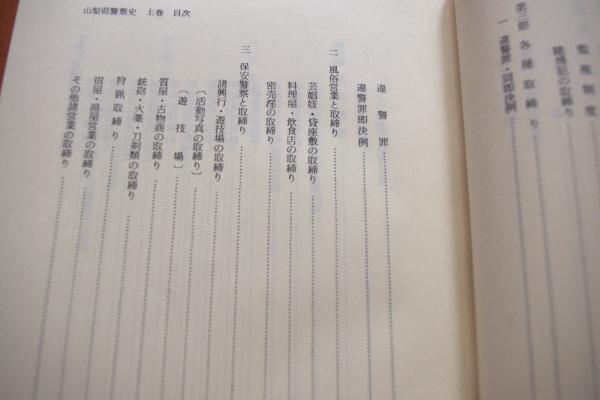 監視制度
賭博犯の取締り
第三節 各種取締り
一 違警罪・同即決例
違警罪
違警罪即決例
二 風俗営業と取締り
芸娼妓・貸座敷の取締り
料理屋・飲食店の取締り
密売淫の取締り
三 保安警察と取締り
諸興行・遊技場の取締り
〔活動写真の取締り〕
〔遊技場〕
質屋・古物商の取締り
銃砲・火薬・刀剣類の取締り
狩猟取締り
宿屋・湯屋営業の取締り
その他諸営業の取締り
山梨県警察史 上巻 目次